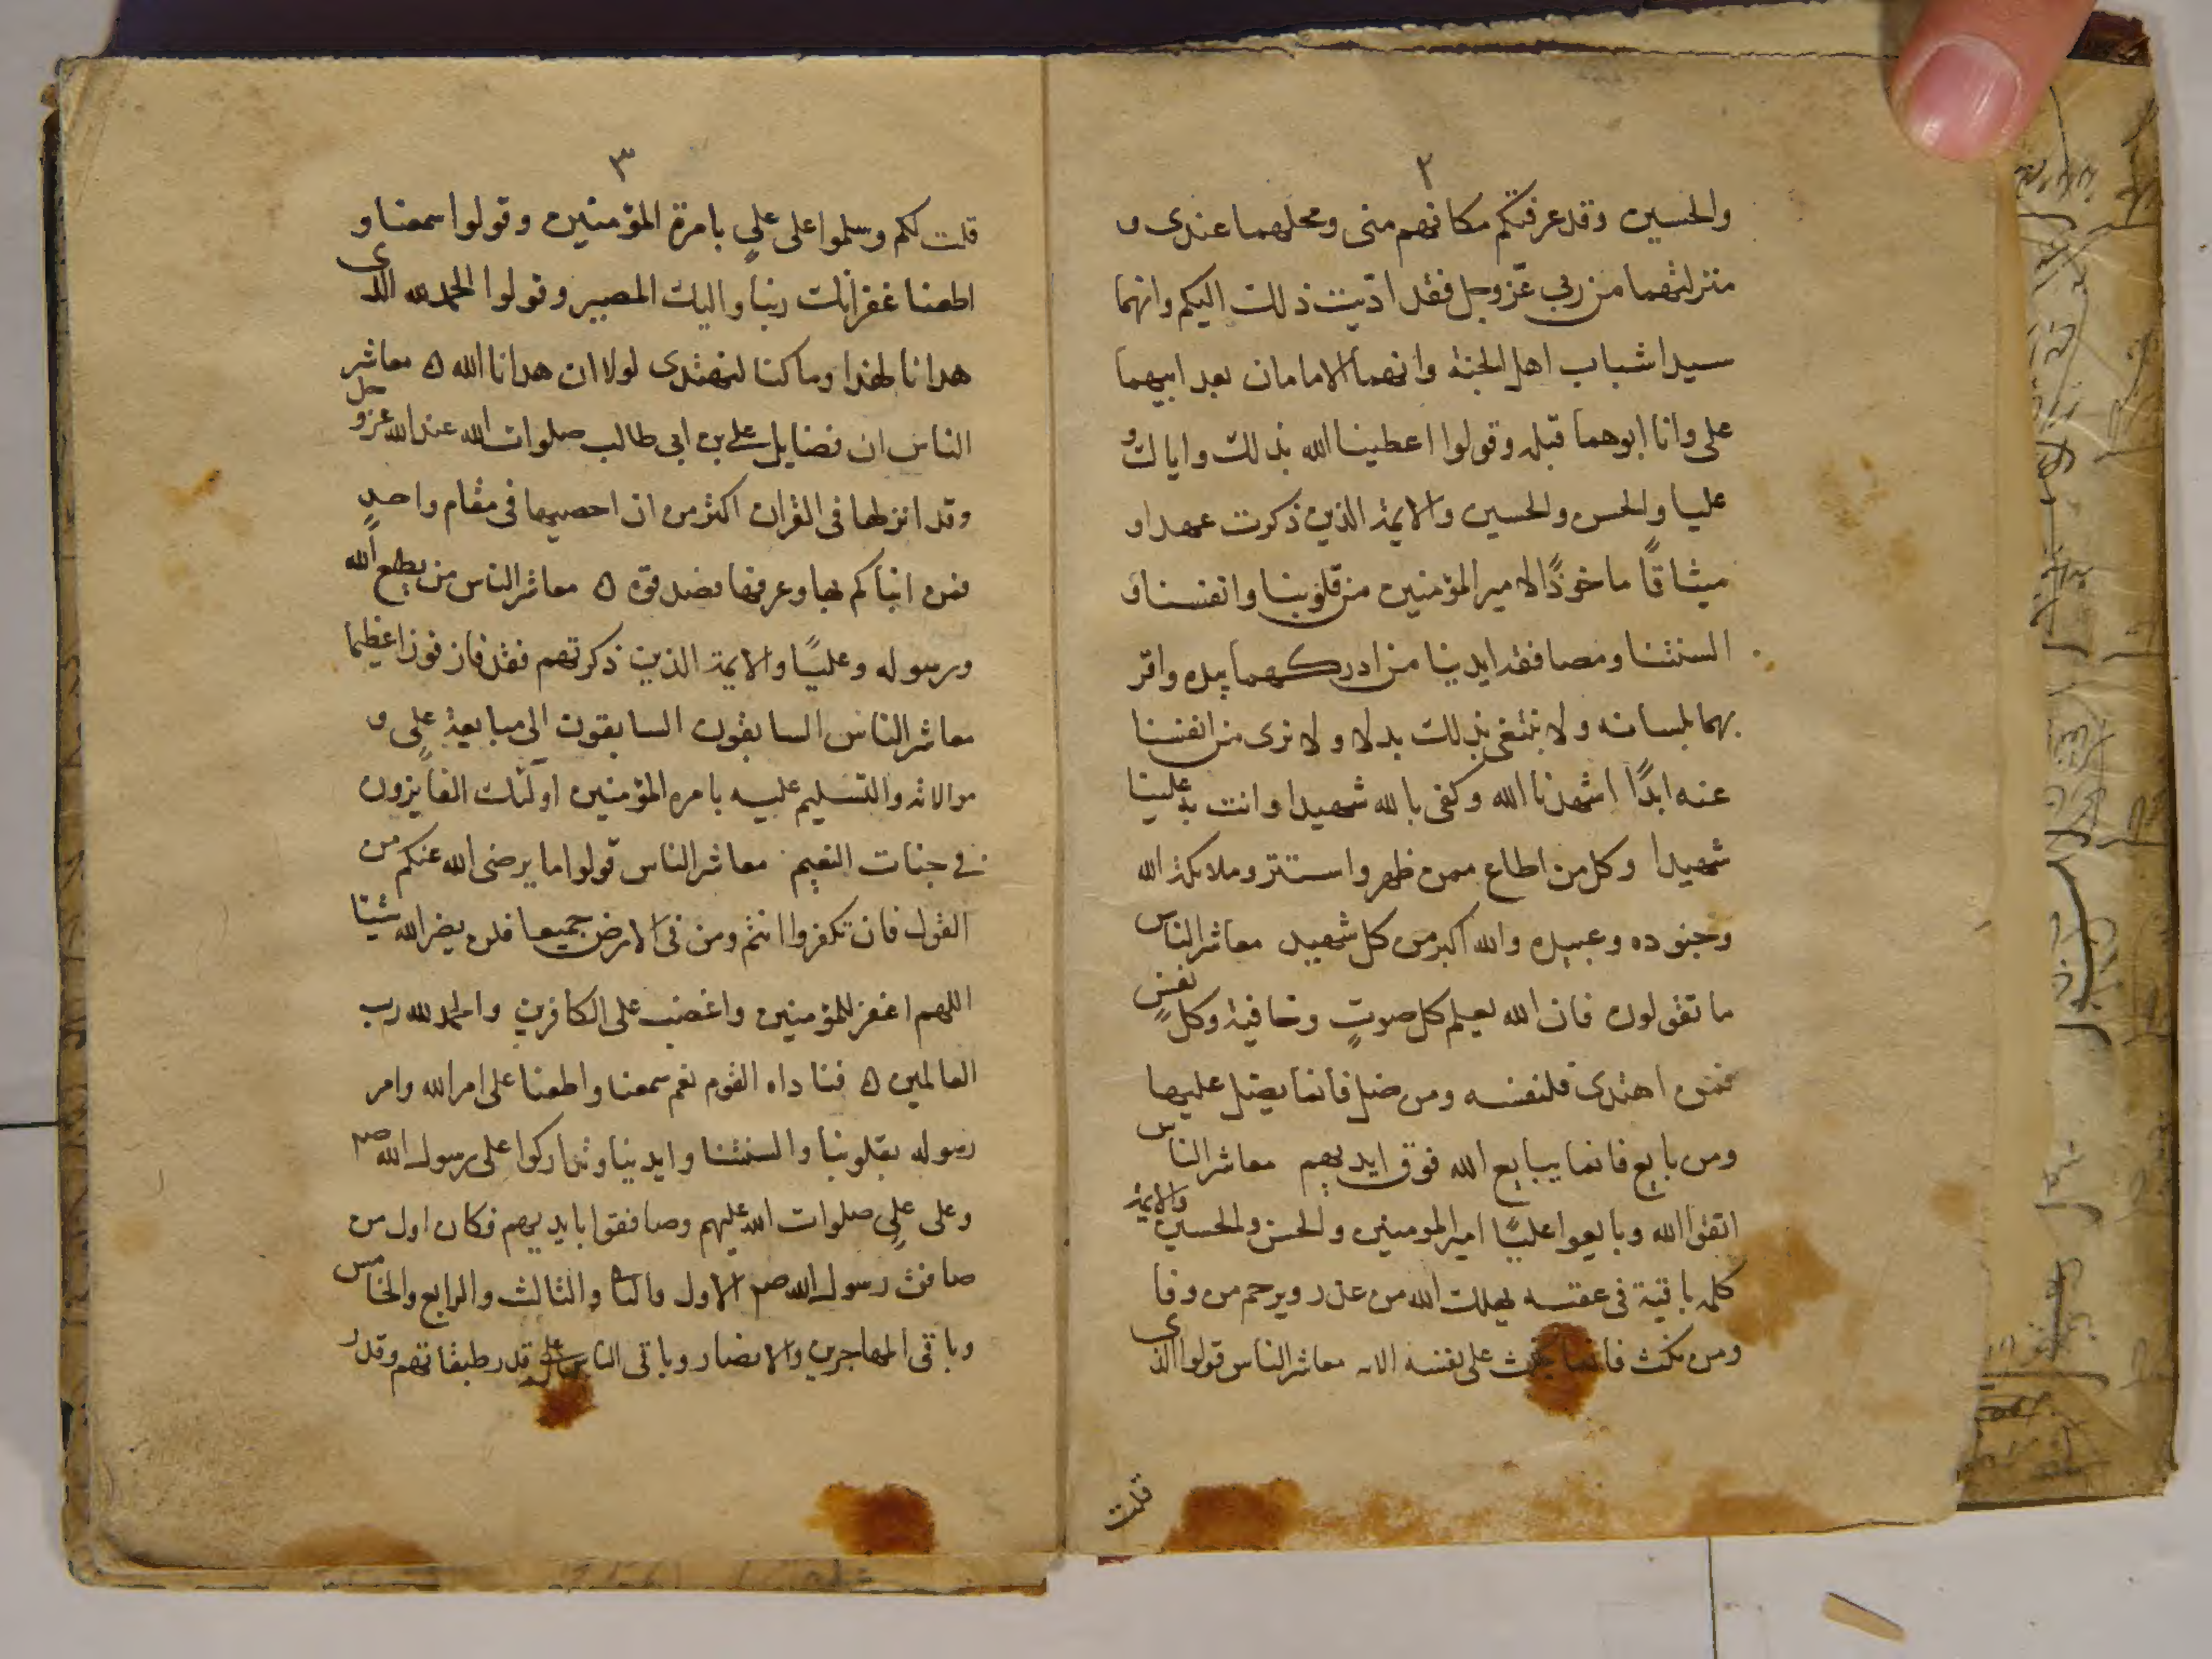 ٢
والحسين وقد عرفتكم مكانهم منى ومحلهما عندى و
منزلتهما من ربي عزّ وجل فقد ادّيت ذلك اليكم وانهما
سيدا شباب اهل الجنة وانهما الامامان بعد ابيهما
على وانا ابوهما قبله وقولوا اعطينا الله بذلك واياك و
عليا والحسن والحسين والايمة الذين ذكرت عهدا و
ميثاقًا ماخوذًا لامير المؤمنين من قلوبنا وانفسنا و
السنتنا ومصافقة ايدينا من ادركهما بيده واقر
بهما بلسانه ولا نبتغى بذلك بدلا ولا نرى من انفسنا
عنه ابدًا اشهدنا الله وكفى بالله شهيدا وانت به علينا
شهيدا وكل من اطاع ممن ظهر واستتر وملائكة الله
وجنوده وعبيده والله اكبر من كل شهيد معاشر الناس
ما تقولون فان الله يعلم كل صوتٍ وخافية وكل نفسٍ
فمن اهتدى فلنفسه ومن ضل فانما يضل عليها
ومن بايع فانما يبايع الله فوق ايديهم معاشر الناس
اتقوا الله وبايعوا عليًا امير المومنين والحسن والحسين والايمة
كلمه باقية فى عقبه يهلك الله من غدر ويرحم من وفا
ومن نكث فانما ينكث على نفسه الاىه معاشر الناس قولوا الذى
قلت
٣
قلت لكم وسلموا على علىٍ بامرة المؤمنين وقولوا سمعنا و
اطعنا غفرانك ربنا واليك المصير وقولوا الحمد لله الذى
هدانا لهذا وما كنا لنهتدى لولا ان هدانا الله ه معاشر
الناس ان فضايل على بن ابى طالب صلوات الله عند الله عز وجل
وقد انزلها فى القران اكثر من ان احصيها فى مقام واحدٍ
فمن انبأكم بها وعرفها فصدقوه ه معاشر الناس من يطع الله
ورسوله وعليًا والايمة الذين ذكرتهم فقد فاز فوزا عظيما
معاشر الناس السابقون السابقون الى مبايعة علىٍ و
موالاته والتسليم عليه بامره المؤمنين اولئك الفايزون
فى جنات النعيم معاشر الناس قولوا ما يرضى الله عنكم من
القول فان تكفروا انتم ومن فى الارض جميعا فلن يضر الله شيئا
اللهم اغفر للمؤمنين واغضب على الكافرين والحمد لله رب
العالمين ه فناداه القوم نعم سمعنا واطعنا على امر الله وامر
رسوله بقلوبنا والسنتنا وايدينا وتداركوا على رسول الله صم
وعلى علىٍ صلوات الله عليهم وصافقوا بايديهم فكان اول من
صافق رسول الله صم الاول والثانى والثالث والرابع والخامس
وباقى المهاجرين والانصار وباقى الناس على قدر طبقاتهم وقدر